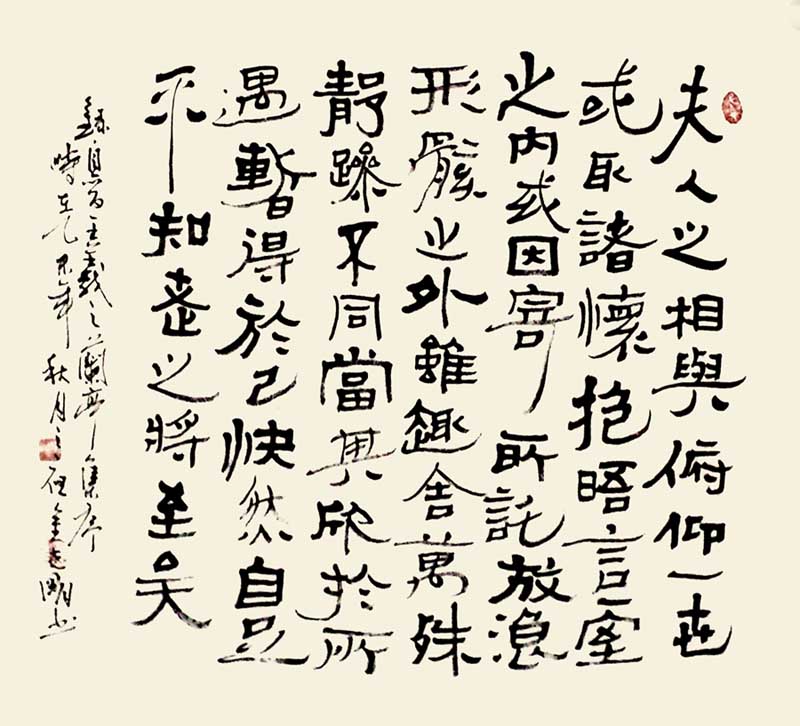 夫人之相與俯仰一世
或取諸懷抱晤言一室
之内或因寄所託放浪
形骸之外雖趣舍萬殊
靜躁不同當其欣於所
遇暫得於己快然自足
不知老之將至矣
錄自晉王羲之蘭亭集序
時在乙未年秋月之